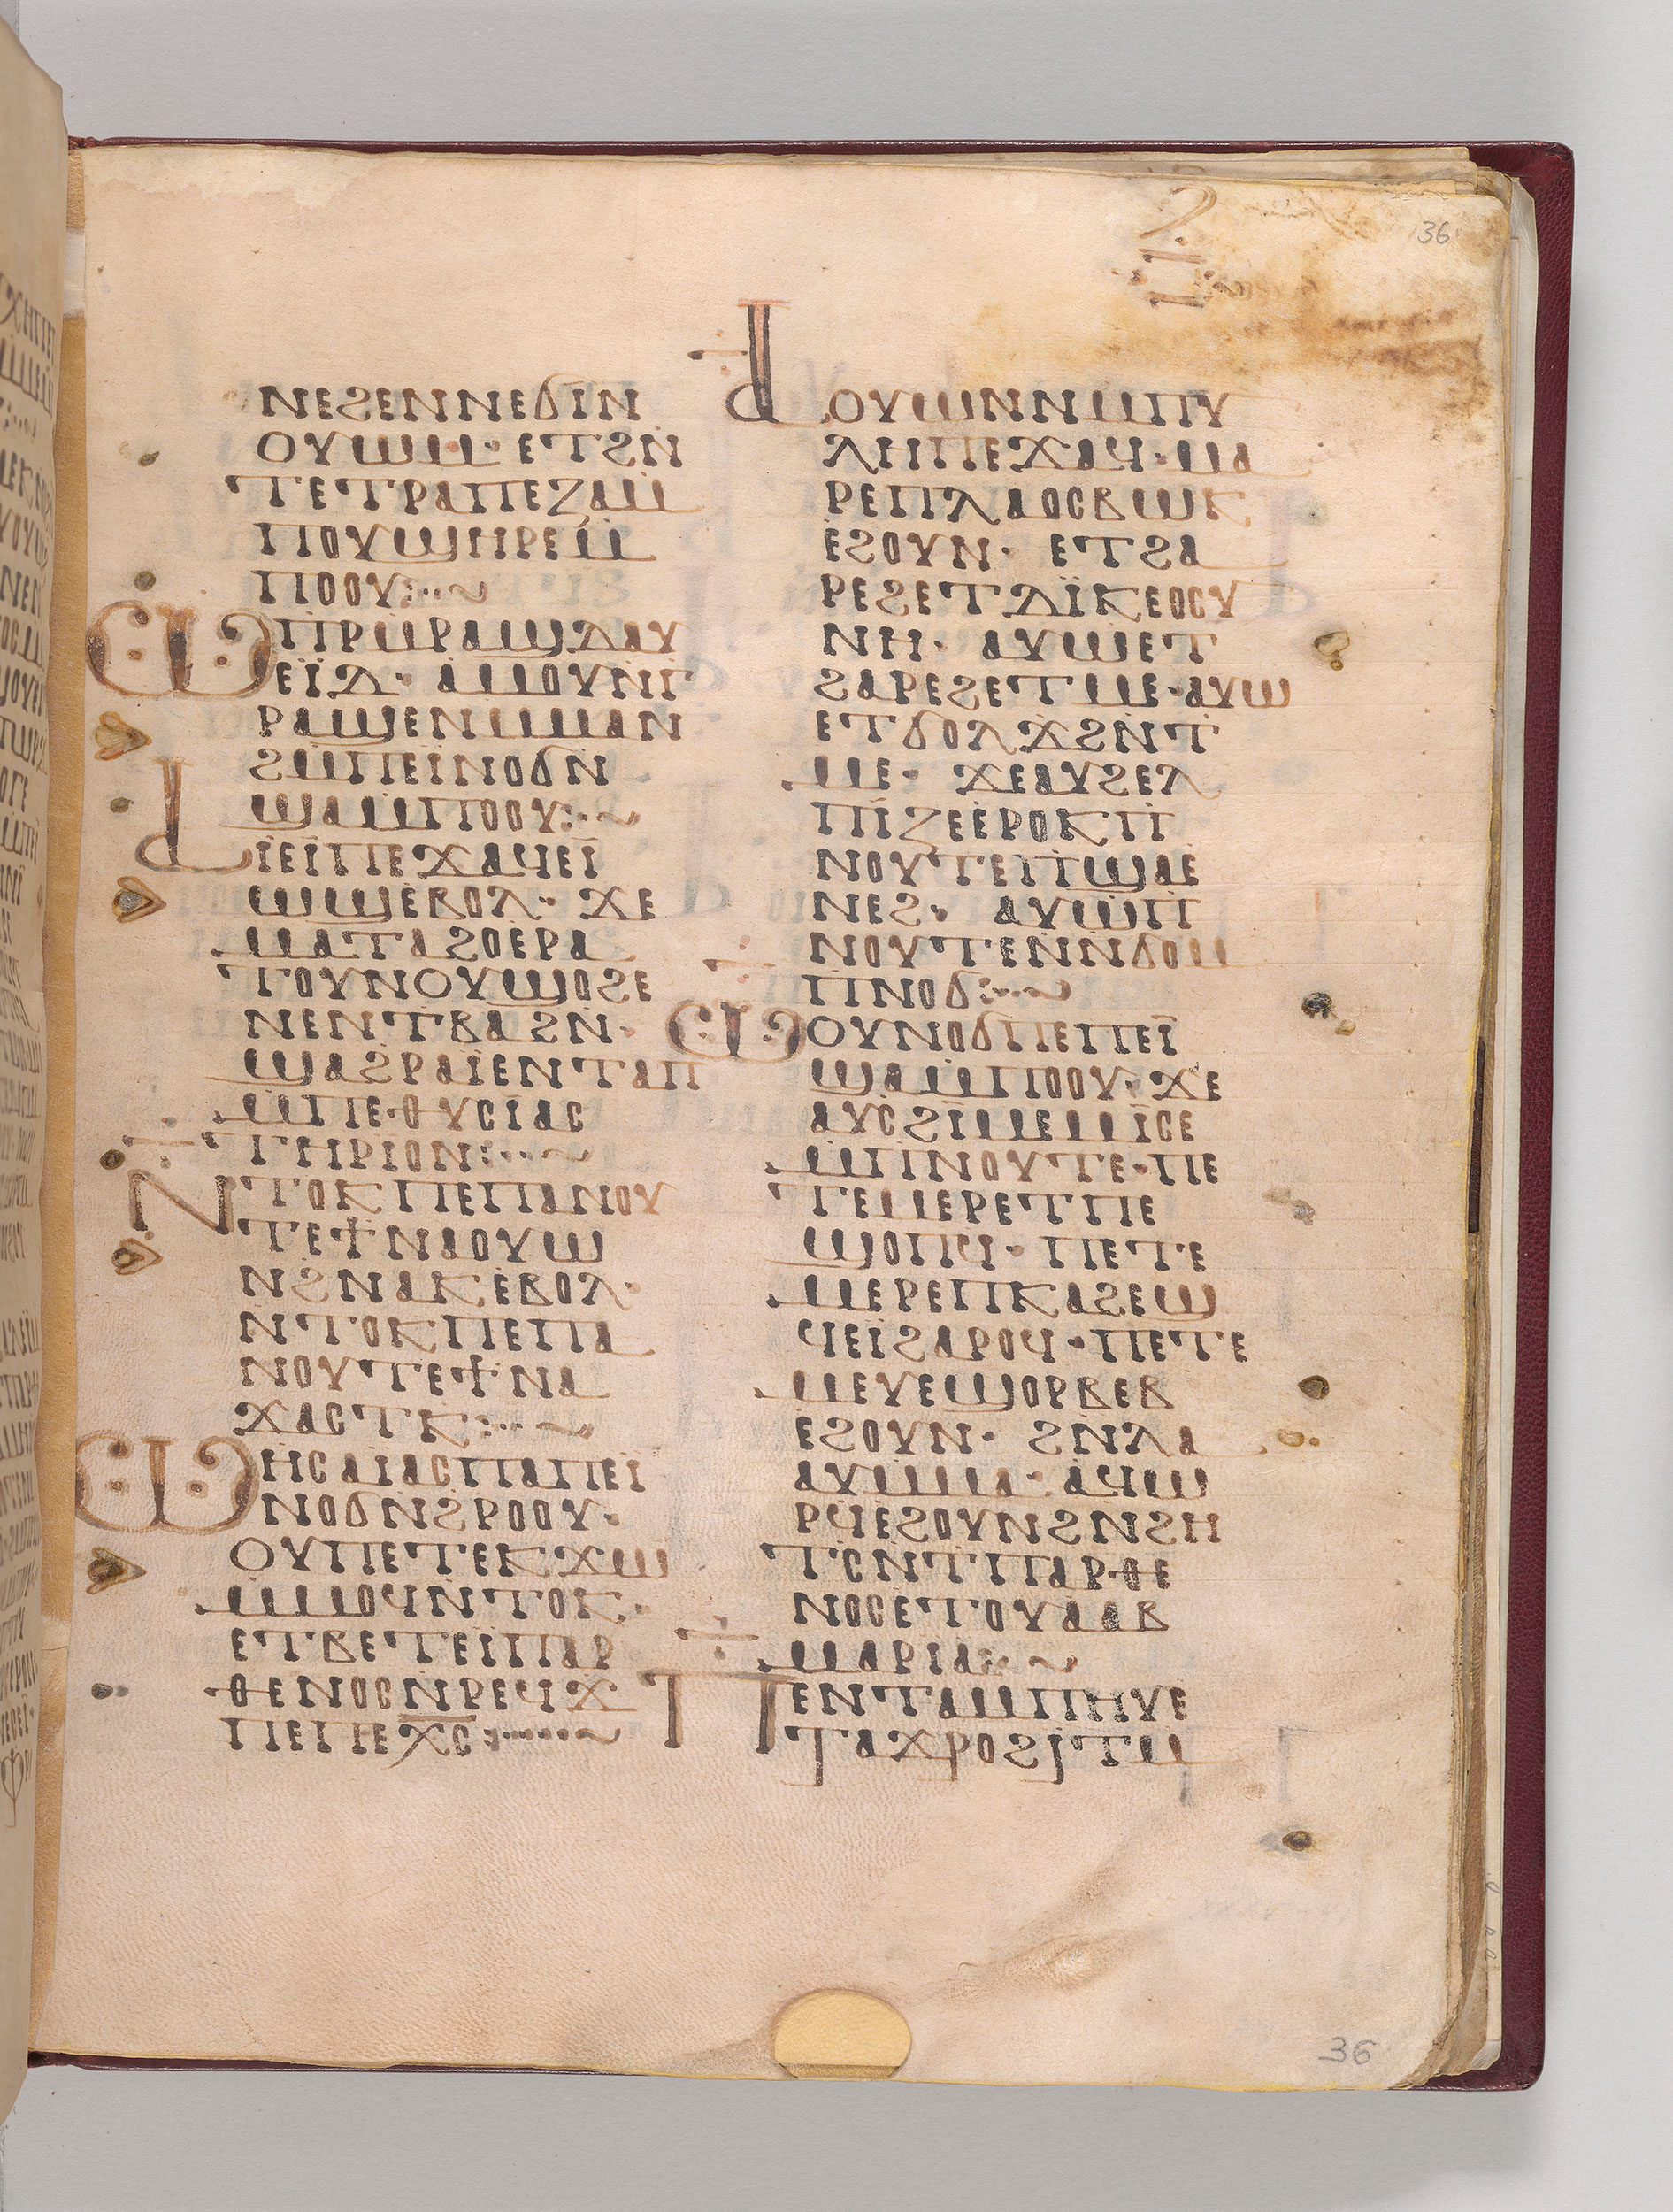 36
ⲛⲉϩⲉⲛⲛⲉϭⲓⲛ
ⲟⲩⲱⲙ· ⲉⲧϩⲛ
ⲧⲉⲧⲣⲁⲡⲉⲍⲁⲙ
ⲡⲟⲩϣⲏⲣⲉⲙ
ⲡⲟⲟⲩ:··~
ⲱⲡⲣⲙⲣⲁϣⲇⲁⲩ
ⲉⲓ̈ⲇ· ⲁⲙⲟⲩⲛⲅ
ⲣⲁϣⲉⲛⲙⲙⲁⲛ
ϩⲙⲡⲉⲓⲛⲟϭⲛ
ϣⲁⲙⲡⲟⲟⲩ:·~
ⲁⲓⲉⲓⲡⲉϫⲁϥⲉⲓ
ⲱϣⲉⲃⲟⲗ· ϫⲉ
ⲙⲁⲧⲁϩⲟⲉⲣⲁ
ⲧⲟⲩⲛⲟⲩϣⲟϩⲉ
ⲛⲉⲛⲧⲃⲁϩⲛ·
ϣⲁϩⲣⲁⲓⲉⲛⲧⲁⲡ
ⲙⲡⲉ·ⲑⲩⲥⲓⲁⲥ
ⲧⲏⲣⲓⲟⲛ:··~
ⲛⲧⲟⲕⲡⲉⲡⲁⲛⲟⲩ
ⲧⲉϯⲛⲁⲟⲩⲱ
ⲛϩⲛⲁⲕⲉⲃⲟⲗ·
ⲛⲧⲟⲕⲡⲉⲡⲁ
ⲛⲟⲩⲧⲉϯⲛⲁ
ϫⲁⲥⲧⲕ:··~
ⲱⲏⲥⲁⲓⲁⲥⲡⲁⲡⲉⲓ
ⲛⲟϭⲛϩⲣⲟⲟⲩ·
ⲟⲩⲡⲉⲧⲉⲕϫⲱ
ⲙⲙⲟϥⲛⲧⲟⲕ·
ⲉⲧⲃⲉⲧⲉⲓⲡⲁⲣ
ⲑⲉⲛⲟⲥⲛⲣⲉϥϫ
ⲡⲉⲡⲉⲭⲥ:····~
ⲁⲟⲩⲱⲛⲛⲙⲡⲩ
ⲗⲏⲡⲉϫⲁϥ·ⲙⲁ
ⲣⲉⲡⲗⲁⲟⲥⲃⲱⲕ
ⲉϩⲟⲩⲛ· ⲉⲧϩⲁ
ⲣⲉϩⲉⲧⲇⲓ̈ⲕⲉⲟⲥⲩ
ⲛⲏ· ⲁⲩⲱⲉⲧ
ϩⲁⲣⲉϩⲉⲧⲙⲉ·ⲁⲩⲱ
ⲉⲧϭⲟⲗϫϩⲛⲧ
ⲙⲉ· ϫⲉⲁⲩϩⲉⲗ
ⲡⲓⲍⲉⲉⲣⲟⲕⲡ
ⲛⲟⲩⲧⲉⲡϣⲁⲉ
ⲛⲉϩ· ⲁⲩⲱⲡ
ⲛⲟⲩⲧⲉⲛⲛϭⲟⲙ
ⲡⲛⲟϭ:··~
ⲱⲟⲩⲛⲟϭⲡⲉⲡⲉⲓ
ϣⲁⲙⲡⲟⲟⲩ· ϫⲉ
ⲁⲩⲥϩⲓⲙⲉⲙⲓⲥⲉ
ⲙⲡⲛⲟⲩⲧⲉ·ⲡⲉ
ⲧⲉⲙⲉⲣⲉⲧⲡⲉ
ϣⲟⲡϥ· ⲡⲉⲧⲉ
ⲙⲉⲣⲉⲡⲕⲁϩⲉϣ
ϥⲉⲓϩⲁⲣⲟϥ·ⲡⲉⲧⲉ
ⲙⲉⲩⲉϣⲟⲣⲃⲉⲃ
ⲉϩⲟⲩⲛ· ϩⲛⲗⲁ
ⲁⲩⲙⲙⲁ· ⲁϥⲱ
ⲣϥⲉϩⲟⲩⲛϩⲛϩⲏ
ⲧⲥⲛⲧⲡⲁⲣⲑⲉ
ⲛⲟⲥⲉⲧⲟⲩⲁⲁⲃ
ⲙⲁⲣⲓⲁ:·~
ⲡⲉⲛⲧⲁⲙⲡⲏⲩⲉ
ⲧⲁϫⲣⲟϩⲓⲧⲙ
36